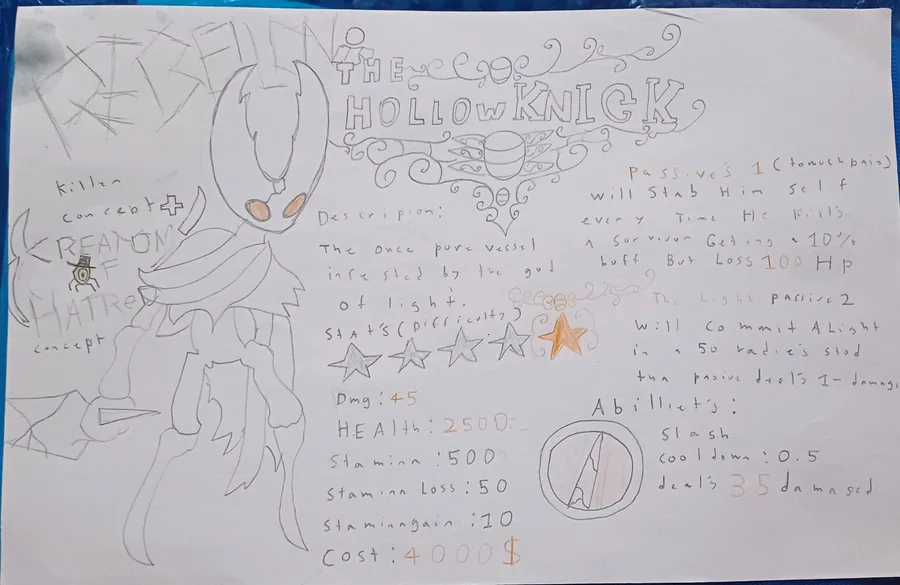 THE
HOLLOW KNIGK
Killer
concept
REALMOM
OF
HATRED
concept
Descripion:
The once pure vessel
infested by the god
of light.
STAt'S (Difficulty)
Dmg: 45
HEAlth: 2500
Stamina: 500
Stamina Loss: 50
Staminagain: 10
Cost: 4000$
Passive's 1 (tomuch pain)
will Stab Him self
every Time He Kill's
A Survivor Getting a 10%
buff But Loss 100 HP
The Light passive 2
Will Commit A Light
in a 50 radie's stud
the pasive deal's 1- damage
Abilliet's:
Slash
cooldown: 0.5
deal's 35 damaged